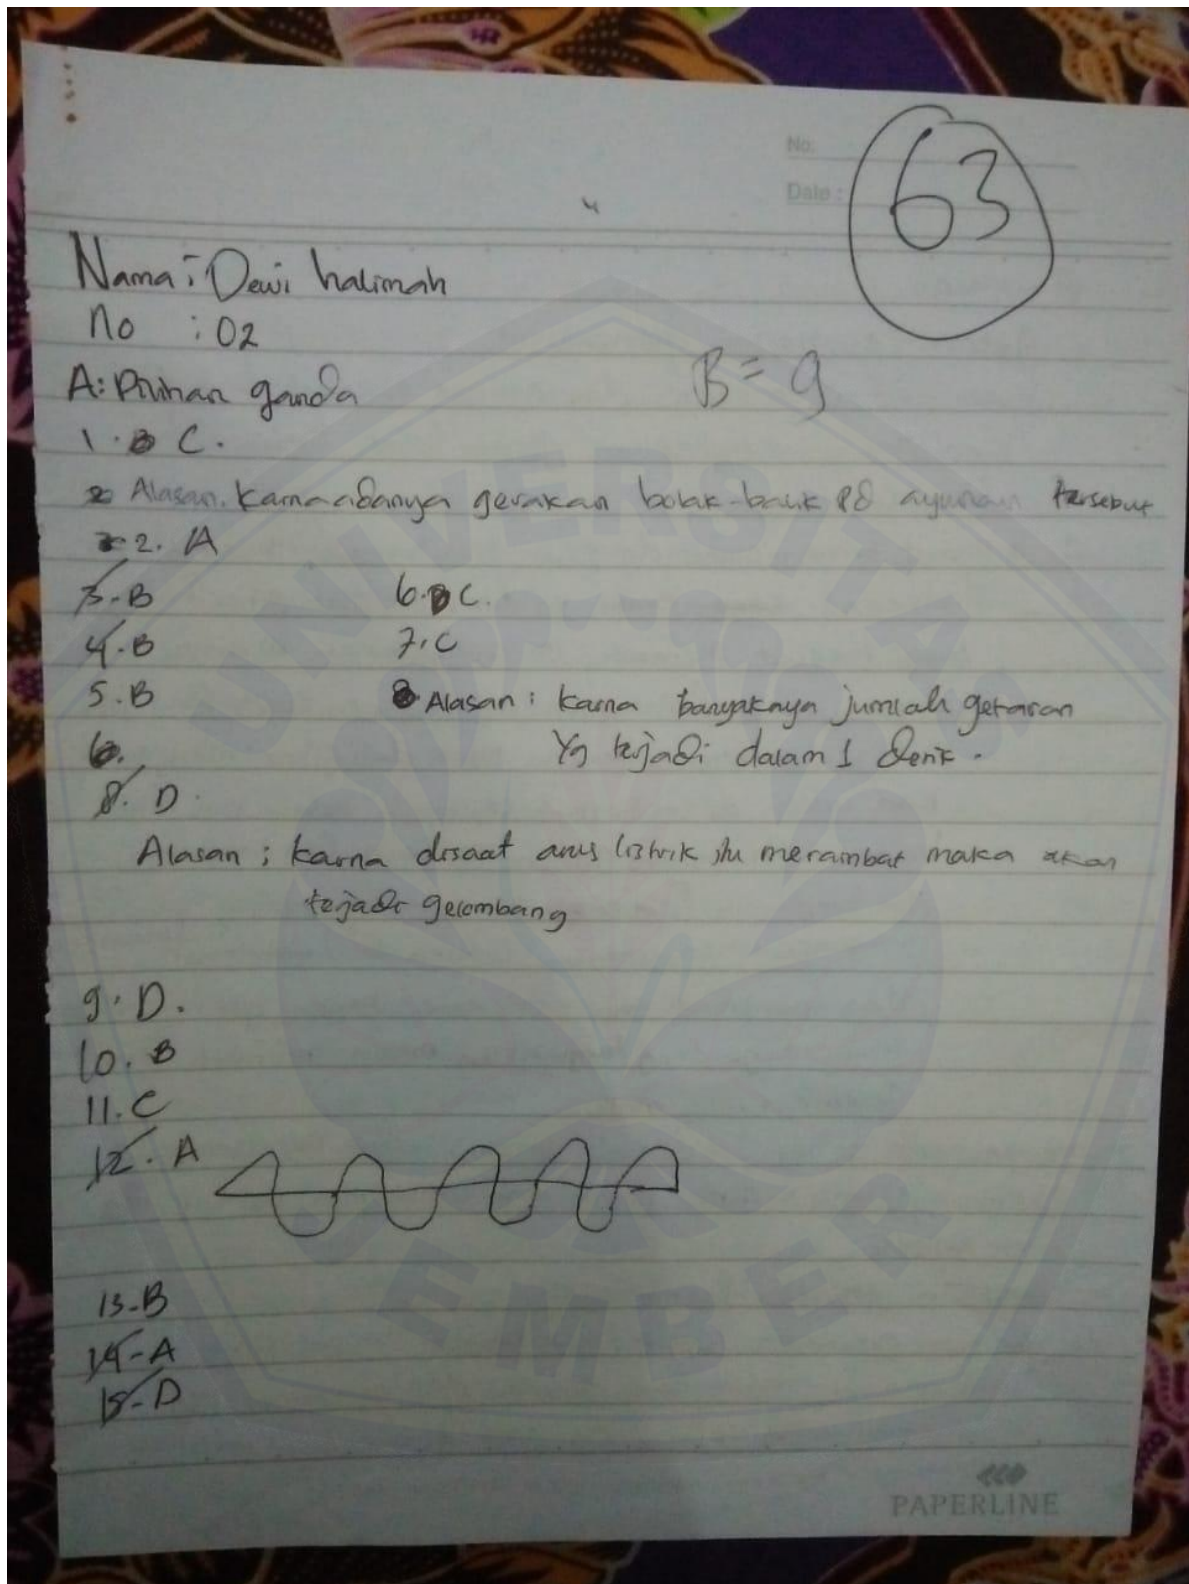 No.
Date :
63
Nama : Dewi halimah
no : 02
B = 9
A: Pilihan ganda
1. C.
Alasan. Karna adanya gerakan bolak-balik pd ayunan tersebut
2. A
3. B
4. B
5. B
6.
8. D.
6. C.
7. C
Alasan : karna banyaknya jumlah getaran
Yg terjadi dalam 1 detik.
Alasan : karna disaat arus listrik itu merambat maka akan
terjadi gelombang
9. D.
10. B
11. C
12. A
13. B
14. A
15. D
PAPERLINE
UNIVERSITAS
JEMBER